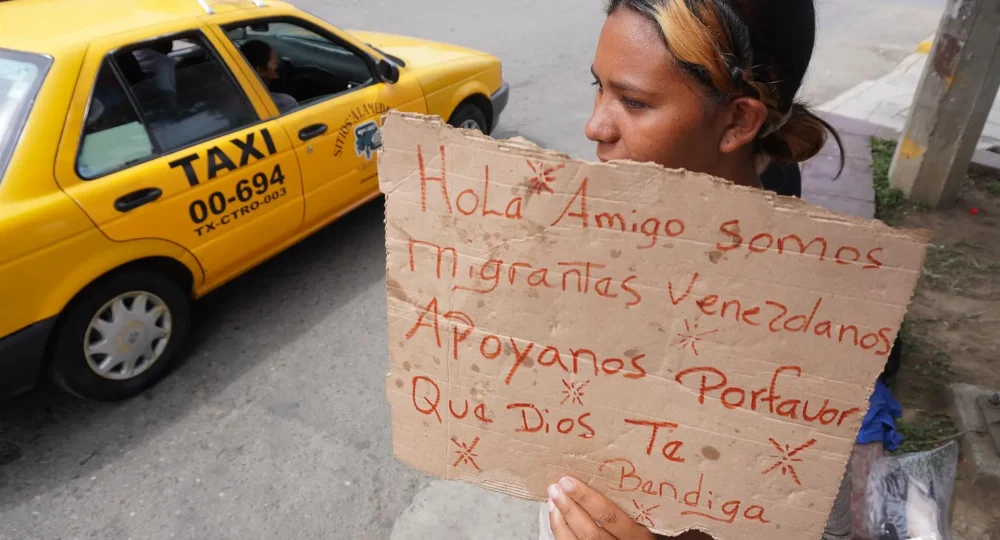 TAXI
00-694
TX-CTRO-003
SITIO "ALAMEDA
Hola Amigo somos
migrantes Venezolanos
Apoyanos Porfavor
Que Dios Te
Bendiga